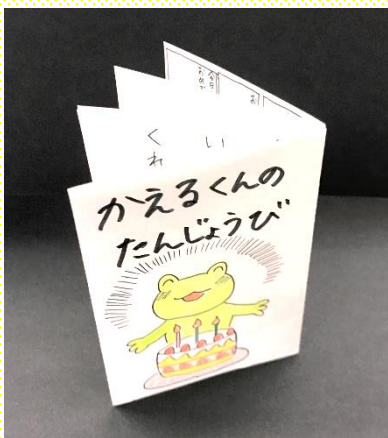 かえるくんの
たんじょうび
くい
れ